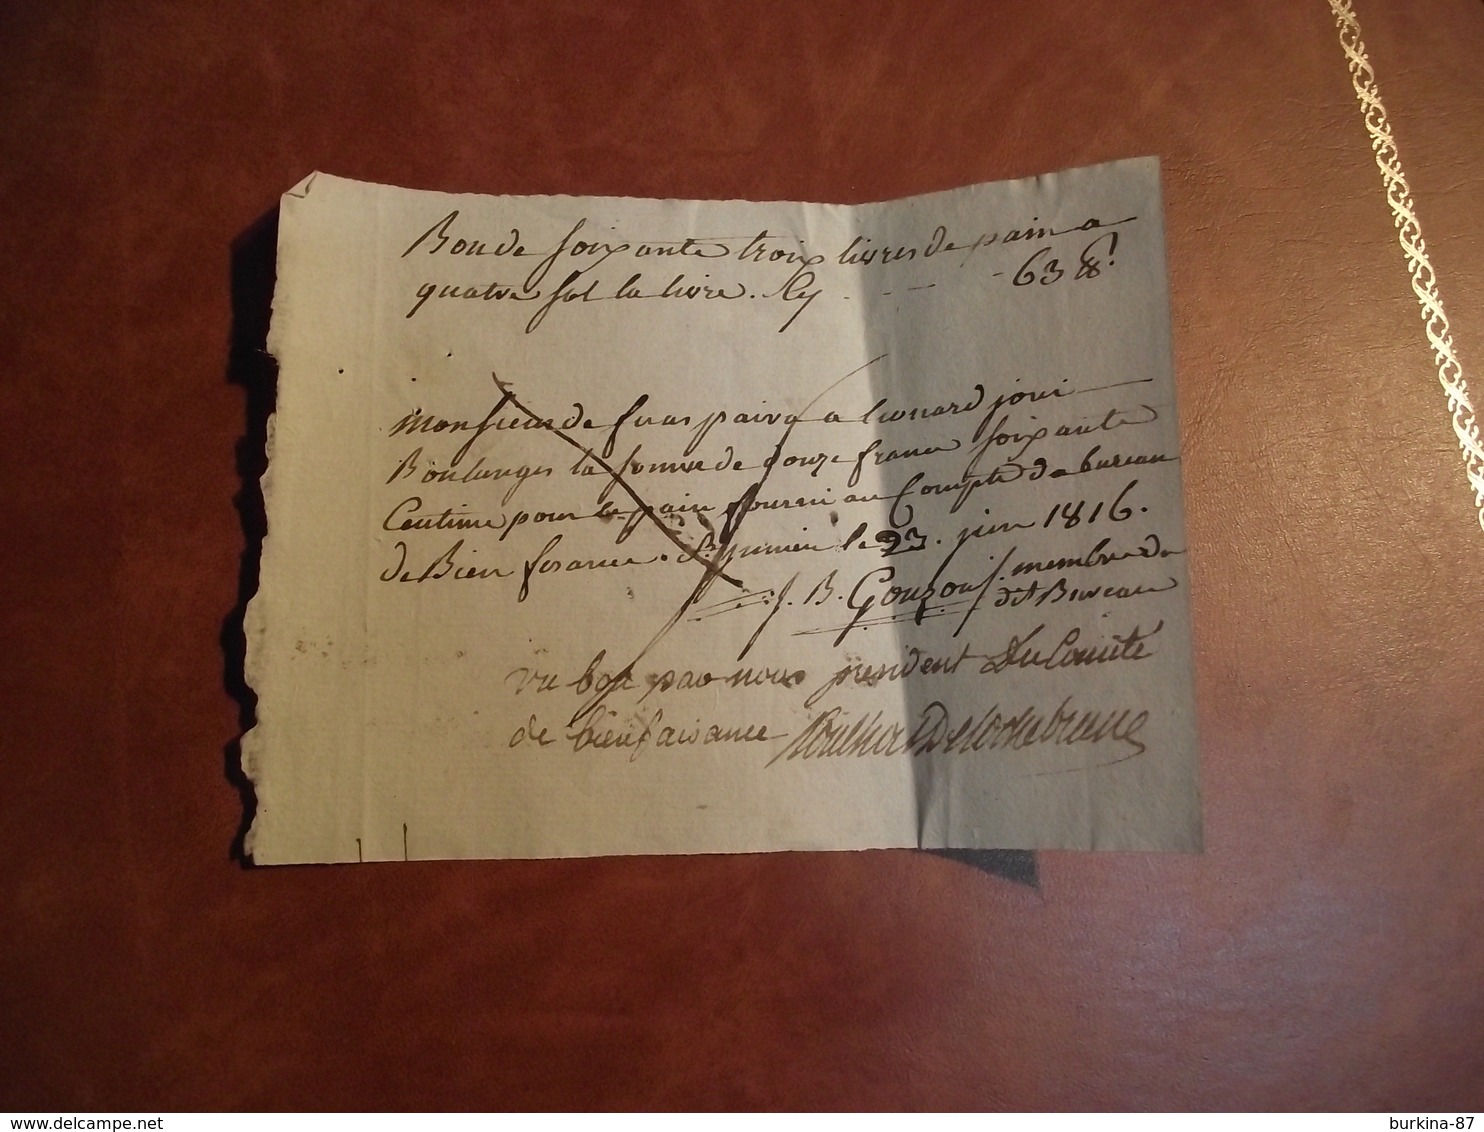 Bon de soixante troix livres de pain a
quatre sol la livre. Cy - - - 63 ll
monsieur de puas paira a lionard joui
Boulanger la somme de douze franc soixante
Centime pour le pain fourni au Compte de bureau
de Bien fesance. St junien le 23. juin 1816.
J. B. Gouzou membre du
dit Bureau
vu bon par nous president Du Comité
de bienfaisance
delcampe.net
burkina-87